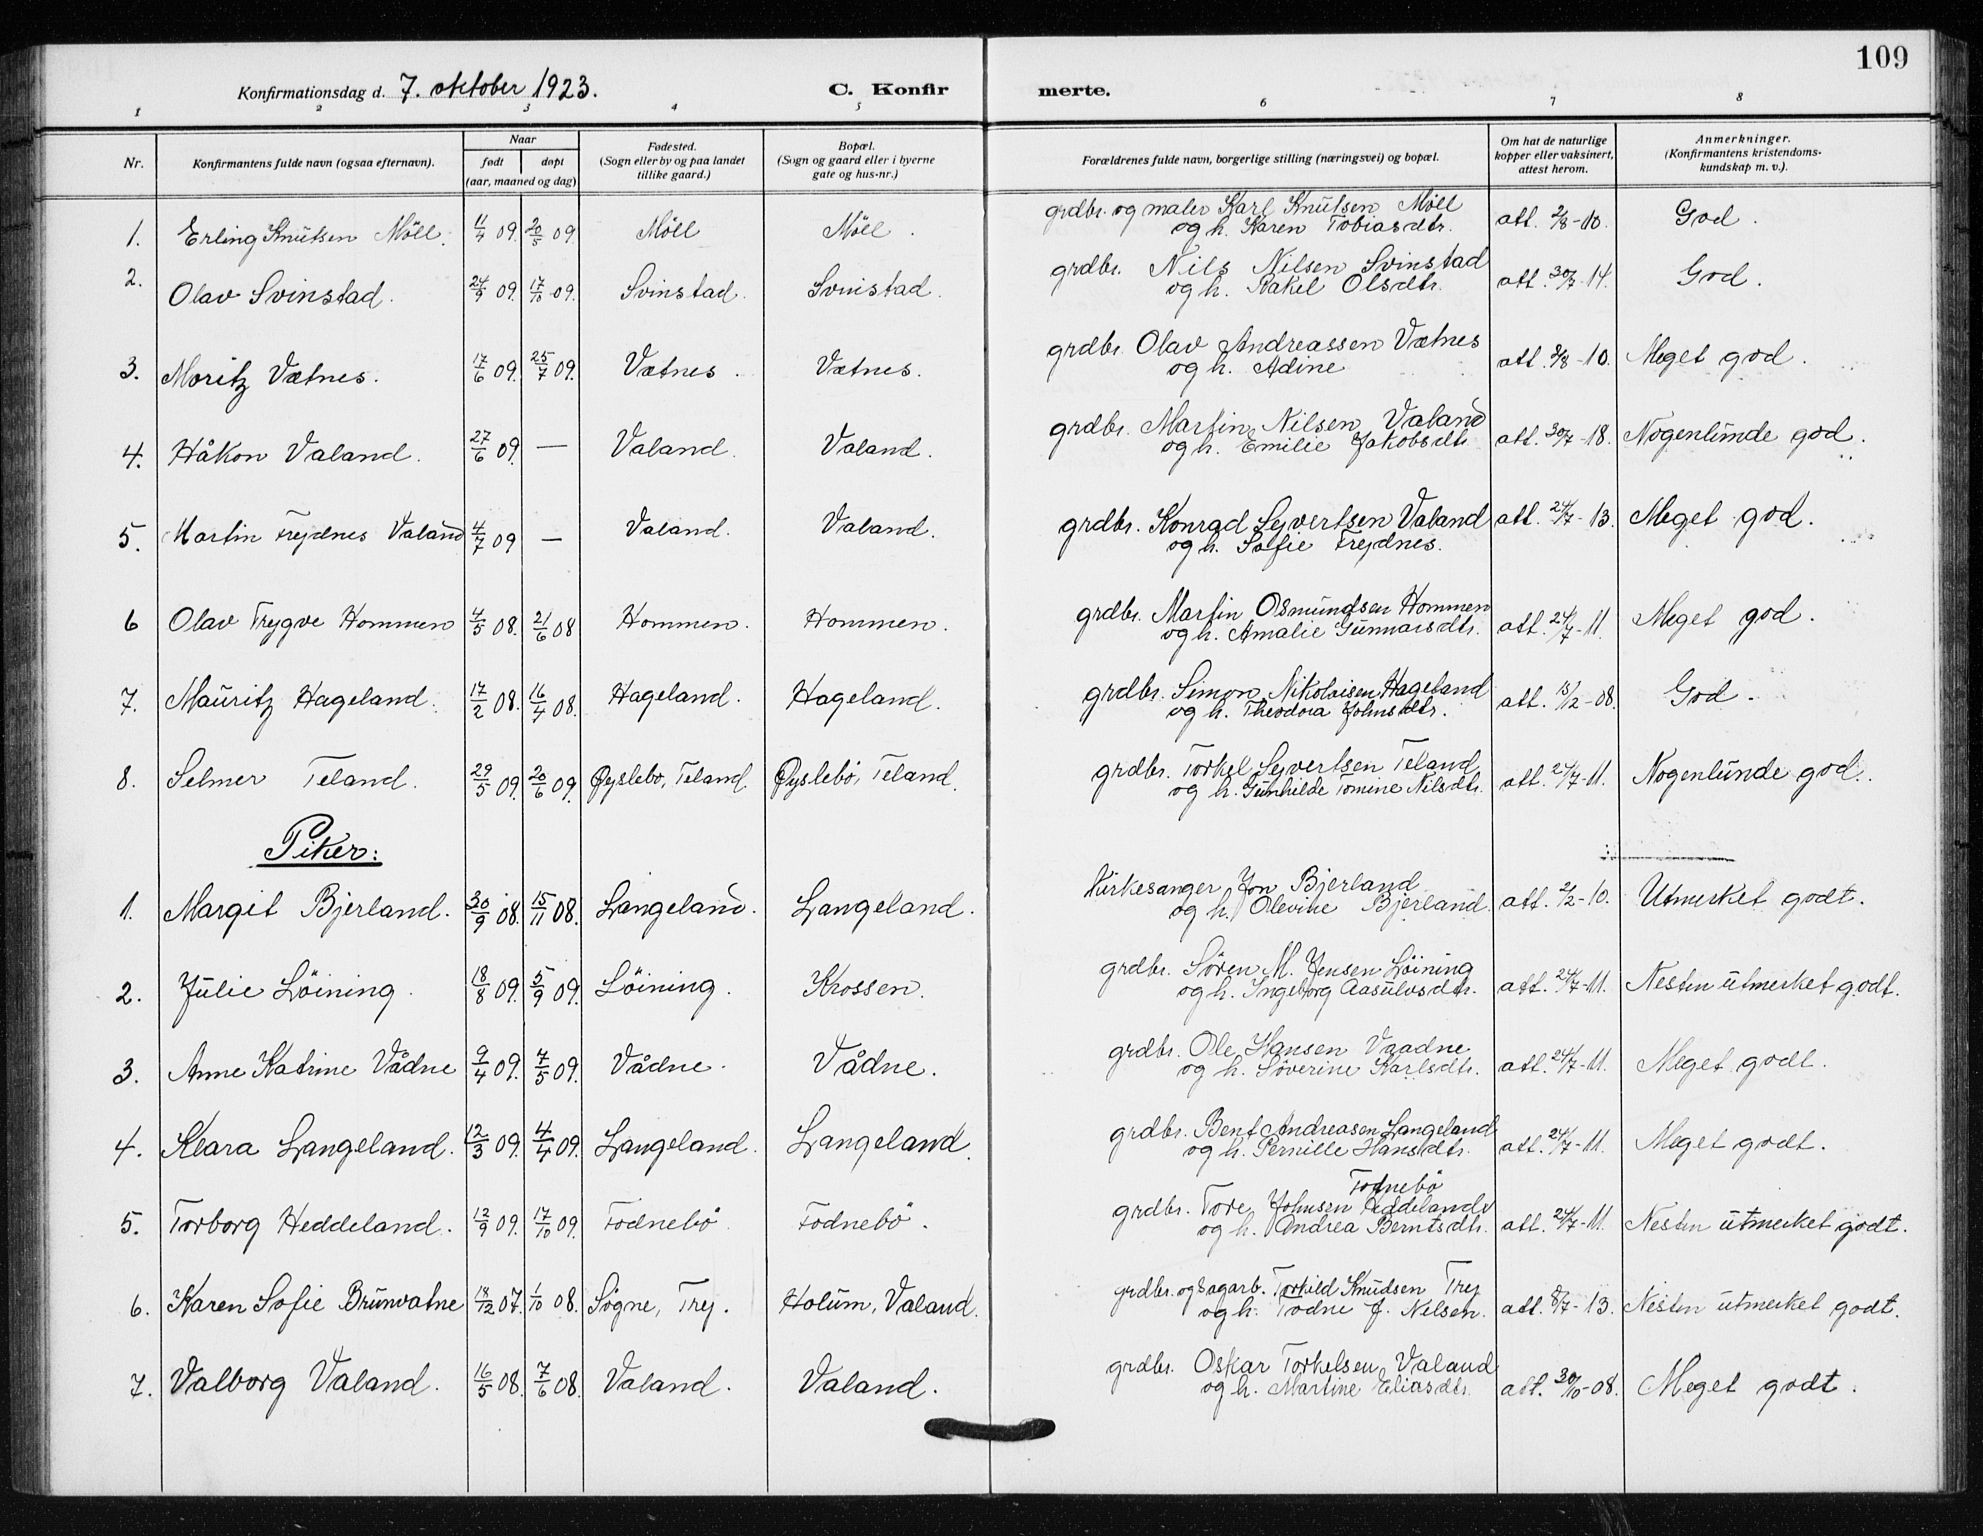 109
Konfirmationsdag d. 7. oktober 1923. C. Konfirmerte.
1 2 3 4 5 6 7 8
Nr. Konfirmantens fulde navn (ogsaa efternavn). Naar født døpt (aar, maaned og dag) Fødested. (Sogn eller by og paa landet tillike gaard.) Bopæl. (Sogn og gaard eller i byerne gate og hus-nr.) Forældrenes fulde navn, borgerlige stilling (næringsvei) og bopæl. Om hat de naturlige kopper eller vaksinert, attest herom. Anmerkninger. (Konfirmantens kristendoms-kundskap m. v.).
1. Erling Knutsen Möll. 11/4 09. 20/5 09. Möll Möll. grdbr. og maler Karl Knutsen Möll att. 2/8-10. God.
og h. Karen Tobiasdtr.
2. Olav Svinstad. 24/9 09. 17/10 09. Svinstad. Svinstad. grdbr. Nils Nilsen Svinstad att. 30/7-14. God.
og h. Rakel Olsdtr.
3. Moritz Vætnes. 17/6 09. 25/7 09. Vætnes. Vætnes. grdbr. Olav Andreassen Vætnes att. 2/8-10. Meget god.
og h. Adine
4. Håkon Valand. 27/6 09. — Valand. Valand. grdbr. Martin Nilsen Valand att. 30/7-18. Nogenlunde god.
og h. Emilie Jakobsdtr.
5. Martin Frejdnes Valand 4/7 09 — Valand. Valand. grdbr. Konrad Sejvertsen Valand att. 24/7-13. Meget god.
og h. Sofie Frejdnes.
6 Olav Trygve Hommen 4/5 08. 21/6 08 Hommen. Hommen. grdbr. Martin Osmundsen Hommen att. 24/7-11. Meget god.
og h. Amalie Gunnarsdtr.
7. Mauritz Hageland. 17/2 08. 16/4 08. Hageland. Hageland. grdbr. Simon Nikolaisen Hageland att. 15/12-08. God.
og h. Theodora Johnsdtr.
8. Selmer Teland. 29/5 09. 20/6 09. Øyslebø, Teland Øyslebö, Teland. grdbr. Torkel Sejvertsen Teland att. 24/7-11. Nogenlunde god.
og h. Gunhilde Tomine Nilsdtr.
Piker:
1. Margit Bjerland. 30/9 08. 15/11 08. Langeland. Langeland. Kirkesanger Jon Bjerland att. 2/2-10. Utmerket godt.
og h. Olevine Bjerland.
2. Julie Löining. 18/8 09. 5/9 09. Löining. Krossen. grdbr. Sören M. Jensen Löining att. 24/7-11. Nesten utmerket godt.
og h. Ingeborg Aasulvsdtr.
3. Anne Katrine Vådne 9/4 09. 7/5 09. Vådne. Vådne. grdbr. Ole Hansen Vaadne att. 24/7-11. Meget godt.
og h. Söverine Karlsdtr.
4. Klara Langeland. 12/3 09. 4/4 09. Langeland. Langeland. grdbr. Bent Andreasen Langeland att. 24/7-11. Meget godt.
og h. Pernille Hansdtr.
Todnebö
5. Torborg Heddeland. 12/9 09. 17/10 09. Todnebö Todnebö. grdbr. Tore Johnsen Heddeland att. 24/7-11. Nesten utmerket godt.
og h. Andrea Berntsdtr.
6. Karen Sofie Brunvatne 18/12 07. 1/10 08. Søgne, Trej. Holum, Valand. grdbr. og sagarb. Torkild Knudsen Trej att. 8/7-13. Nesten utmerket godt.
og h. Todne J. Nelsen.
7. Valborg Valand. 16/5 08. 7/6 08. Valand. Valand. grdbr. Oskar Torkelsen Valand att. 30/10-08. Meget godt.
og h. Martine Eliasdtr.